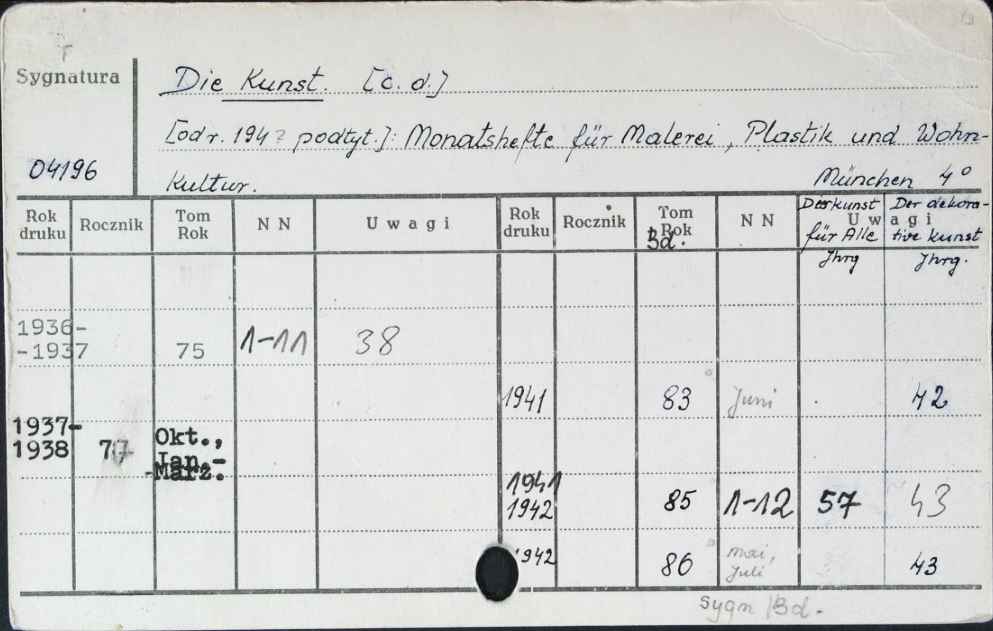 F
Sygnatura
Die Kunst. [c.d.]
[od r. 194? podtyt.]: Monatshefte für Malerei, Plastik und Wohn-
04196
kultur. München 4°
Rok druku Rocznik Tom Rok NN Uwagi Rok druku Rocznik Tom Rok Bd. NN Uwagi
Die Kunst für Alle Jhrg
Der dekorative Kunst Jhrg.
1936-
-1937 75 1-11 38
1941 83 Juni 42
1937-
1938 77 Okt.,
Jan.-
-März.
1941
1942 85 1-12 57 43
1942 86 Mai,
Juli 43
Sygn /Bd.